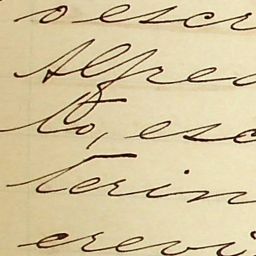 o escr
Alfred
to, esc
terin
crevi